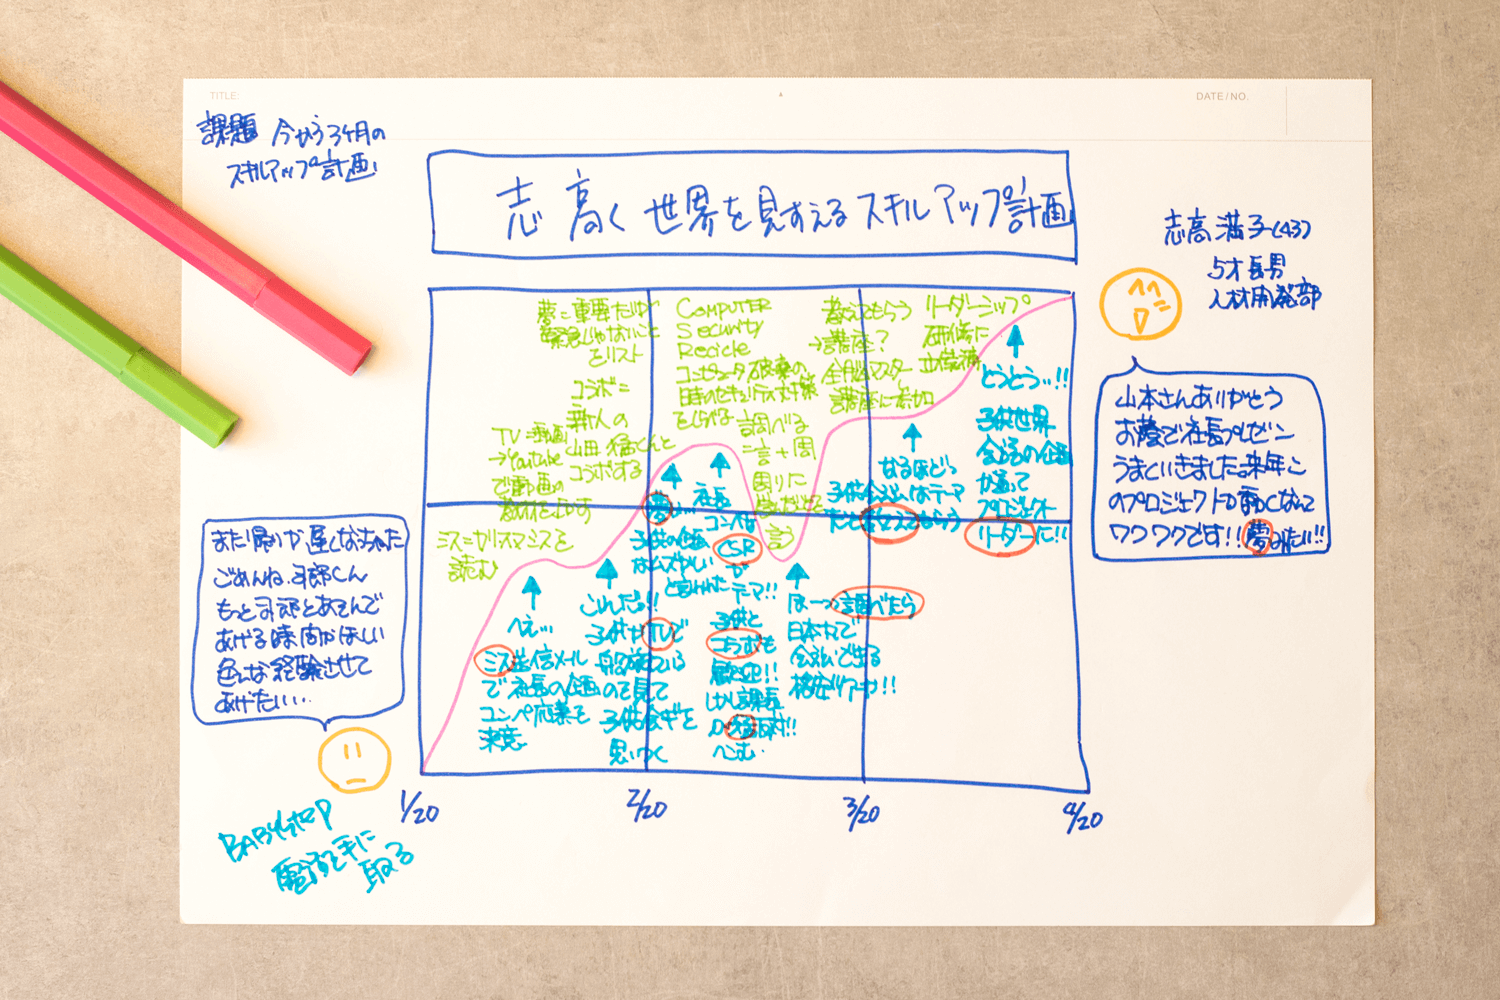 TITLE.
DATE/NO.
課題 今から3ヶ月の
スキルアップ計画
志高く世界を見すえるスキルアップ計画
志高満子(43)
5才長男
人材開発部
山本さんありがとう
お蔭で社長プレゼン
うまくいきました。来年こ
のプロジェクトが動くなんて
ワクワクです!! 夢みたい!!
夢=重要だけど
緊急じゃないこと
をリスト
コラボ=
新人の
山田猛くんと
コラボする
TV=動画
→Youtube
で動画の
ミス=カリスマミスを
読む
COMPUTER
Security
Recicle
コンピュータ破棄の
時のセキュリティ対策
をしらべる
調べる
=言+周
周りに
言う
教えてもらう
→講座?
全脳マスター
講座に参加
リーダーシップ
研修に
とうとう…!!
子供世界
会議の企画
が通って
プロジェクト
リーダーに!!
なるほどっ
子供会議はテーマ
社長
コンペは
CSR
が
テーマ!!
子供の企画
はムズかしい
と言われた
へえ…
ミス送信メール
で社長の企画
コンペ応募を
決意
これだっ!!
子供がTVで
のを見て
子供会議を
思いつく
子供と
コラボも
歓迎!!
しかし課長
の猛反対!!
へこむ…
ほーっ調べたら
日本力で
また帰りが遅くなっちゃった
ごめんね。司郎くん
もっと司郎とあそんで
あげる時間がほしい
色んな経験させて
あげたい…
1/20
2/20
3/20
4/20
BABYSTEP
電話を手に
取る